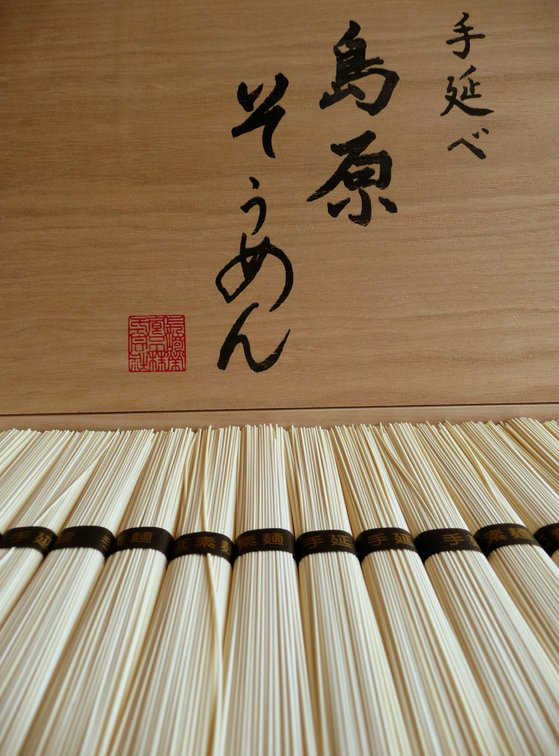 手延べ
島原
そうめん
手延
素麺
手延
手延
手延
素麺